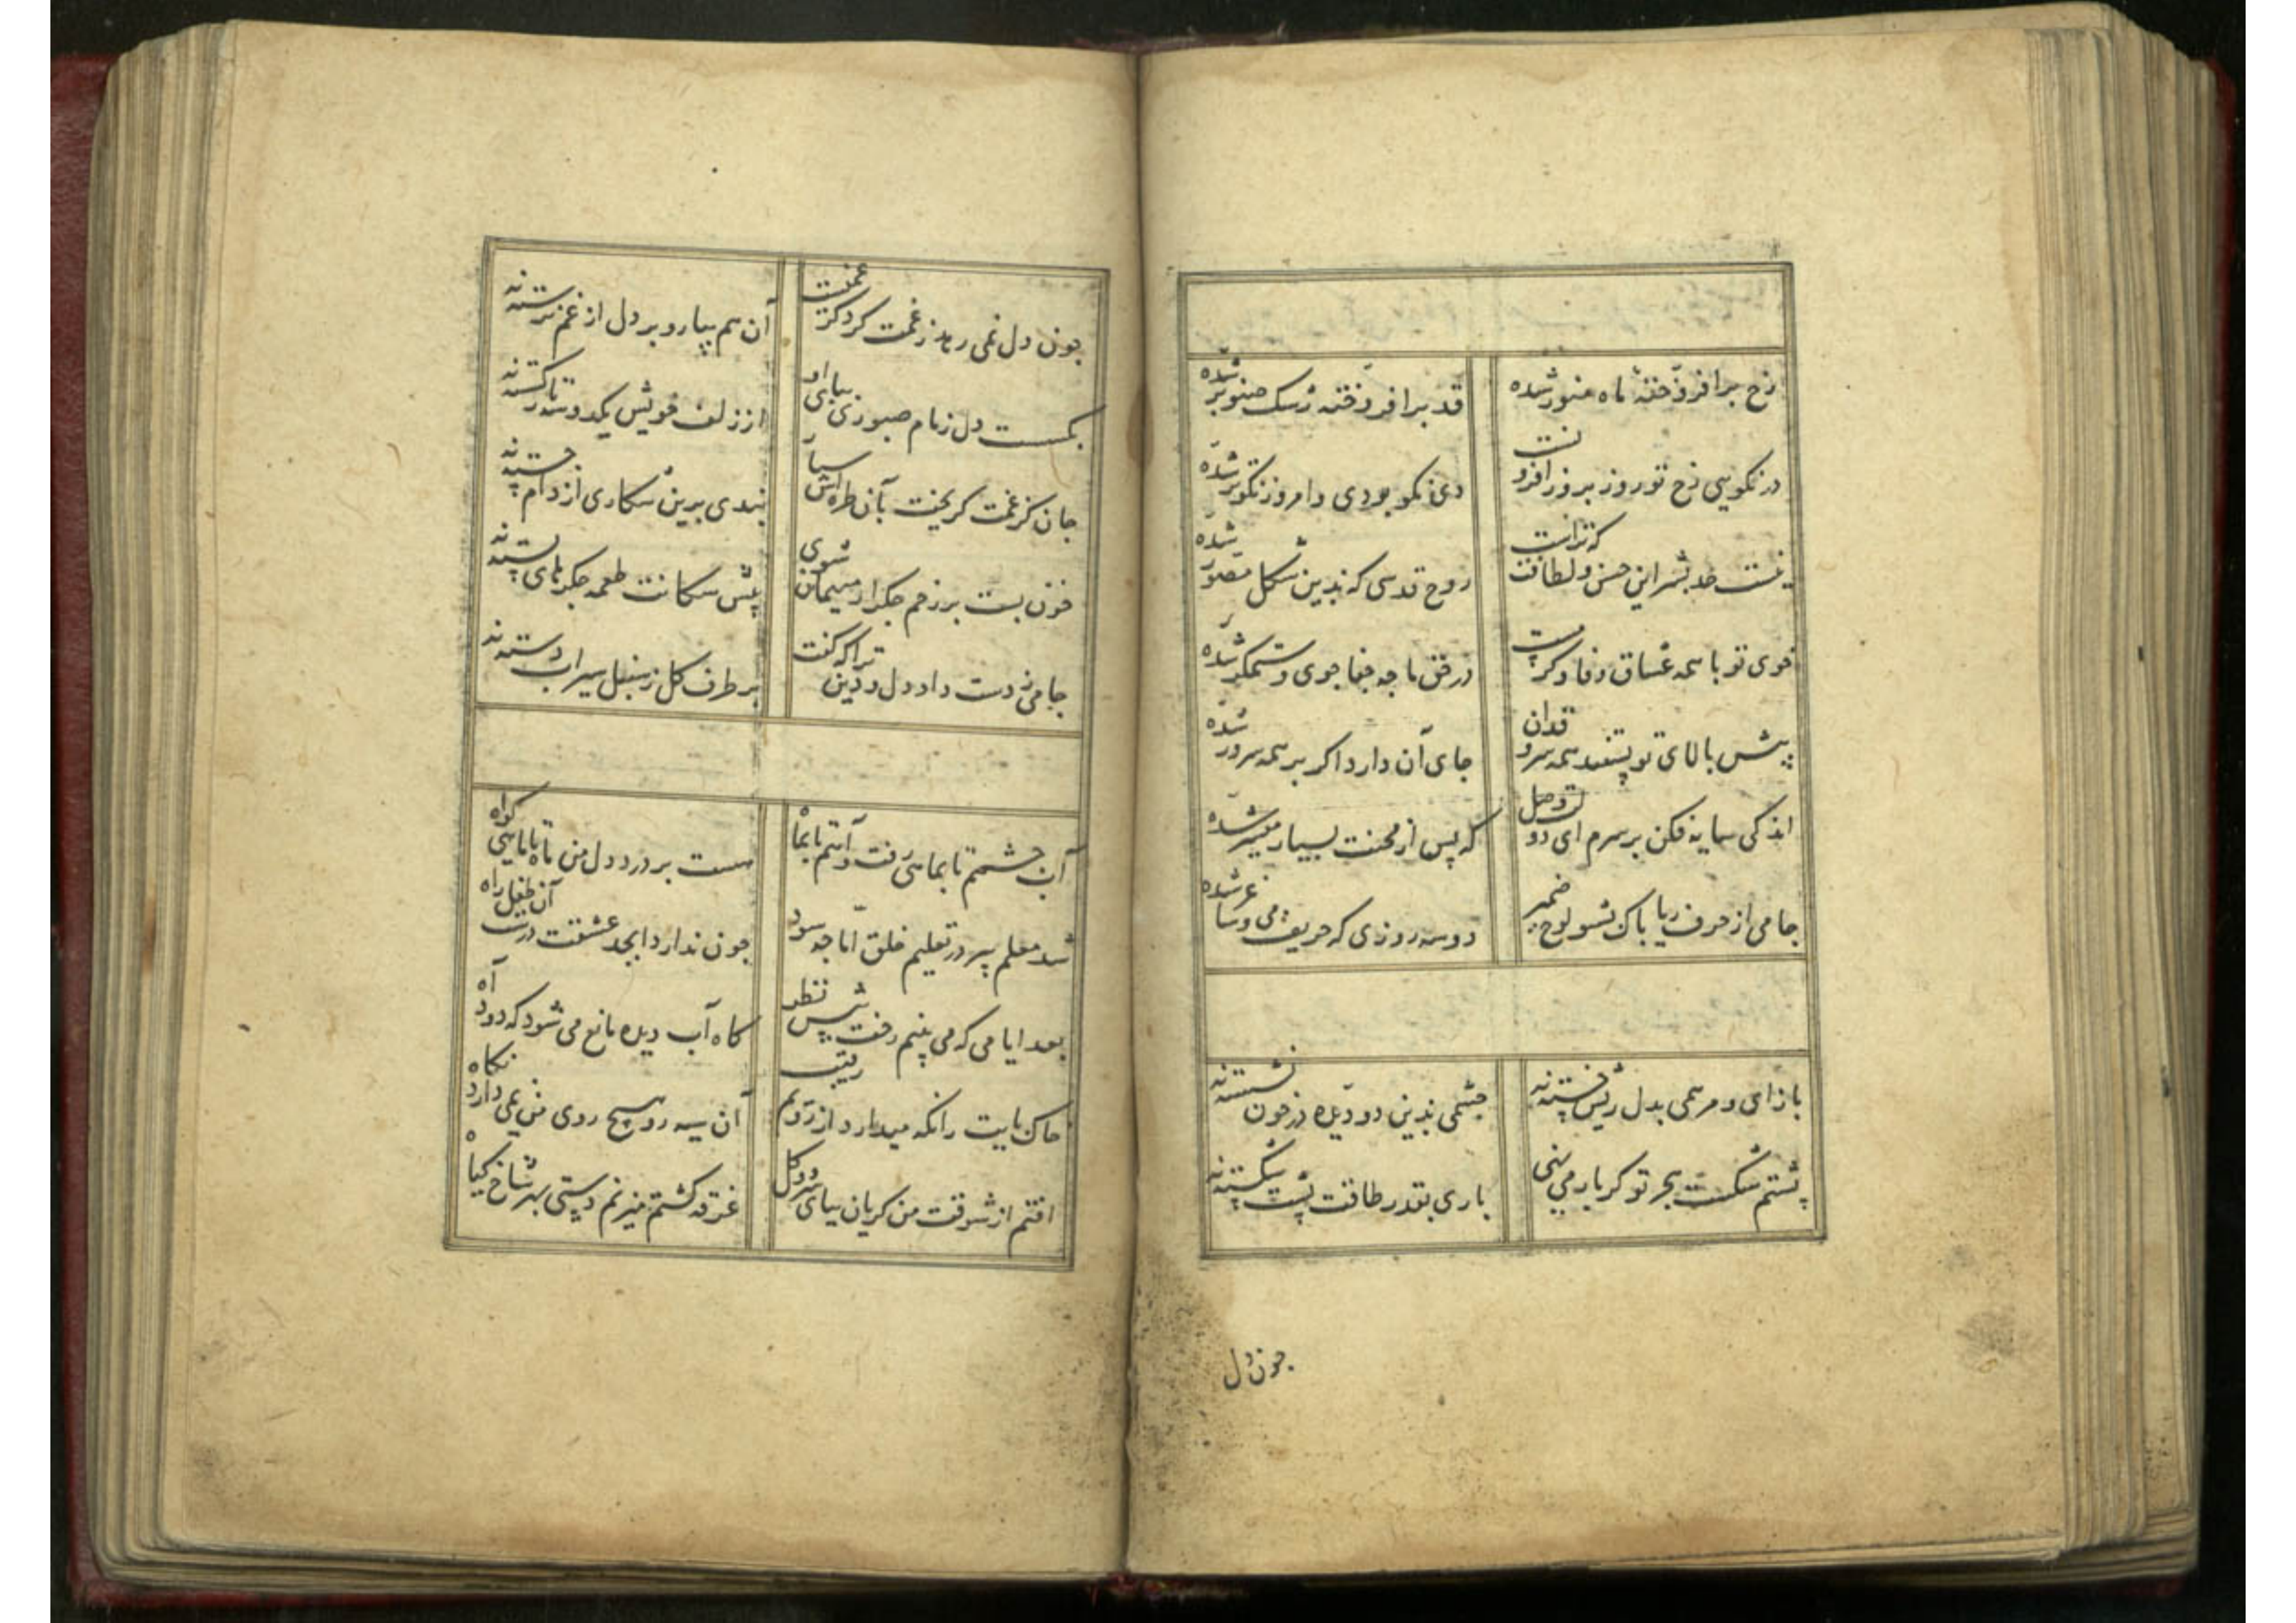 رخ برافروخته ماه منور شده قد برافروخته رشک صنوبر شده
در نکویی رخ تو روز بروز افزونست دی نکو بودی و امروز نکوتر شده
نیست حد بشر این حسن و لطافت که تراست روح قدسی که بدین شکل مصور شده
خوی تو با همه عشاق وفا و کرمست در حق ما جه جفا جوی و ستمکر شده
پیش بالای تو پستند همه سرو قدان جای آن دارد اکر بر همه سرور شده
اندکی سایه فکن بر سرم ای دولت وصل که پس از محنت بسیار میسر شده
جامی از حرف ریا باک بشو لوح ضمیر دو سه روزی که حریف می و ساغر شده
باز ای و مرهمی بدل ریش خسته نه جشمی بدین دو دیده در خون نشسته نه
پشتم شکست هجر تو کر بار می نهی باری بقدر طاقت پشت شکسته نه
جون دل
جون دل نمی رهد ز غمت کرد کز غمت آن هم بیار و بر دل از غم نرسته نه
بکسست دل زمام صبوری بیا و بای از زلف خویش یکدوسه تار کسسته نه
جان کز غمت کریخت بآن طره اش سپار بندی برین شکاری از دام جسته نه
خون بست بر زخم جکر ار میهمان شوی پیش سکانت طعمه جکرهای بسته نه
جامی ز دست داد دل و دین ترا که کفت بر طرف کل ز سنبل سیراب دسته نه
آب جشمم تا بماهی رفت و آتم تا بماه هست بر درد دل من ماه تا ماهی کواه
شد معلم پیر در تعلیم خلق اما جه سود جون ندارد ابجد عشقت درست آن طفل راه
بعد ایامی که می بینم رخت پیش نظر کاه آب دیده مانع می شود که دود آه
خاک بایت را نکه میدارد از رویم رقیب آن سیه رو هیج روی من نمی دارد نکاه
افتم از شوقت من کریان بیای سرو و کل غرقه کشتم میزنم دستی بهر شاخ کیاه